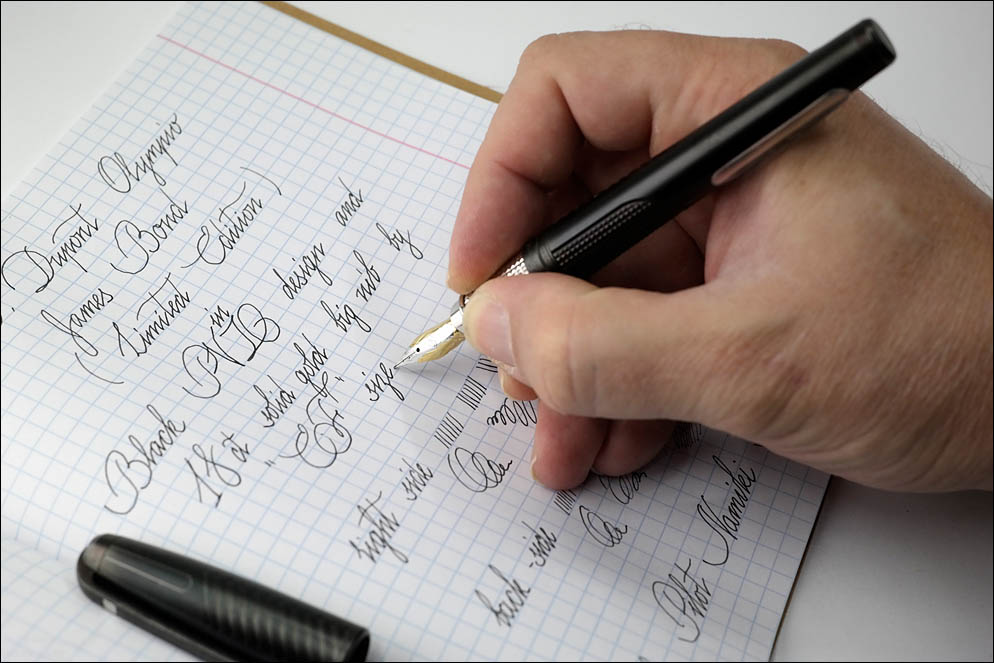 Dupont Olympio
James Bond
(Limited Edition)
Black PVD in design and
18 ct solid gold big nib by
"EF" size
right side
back-side
Pilot Namiki